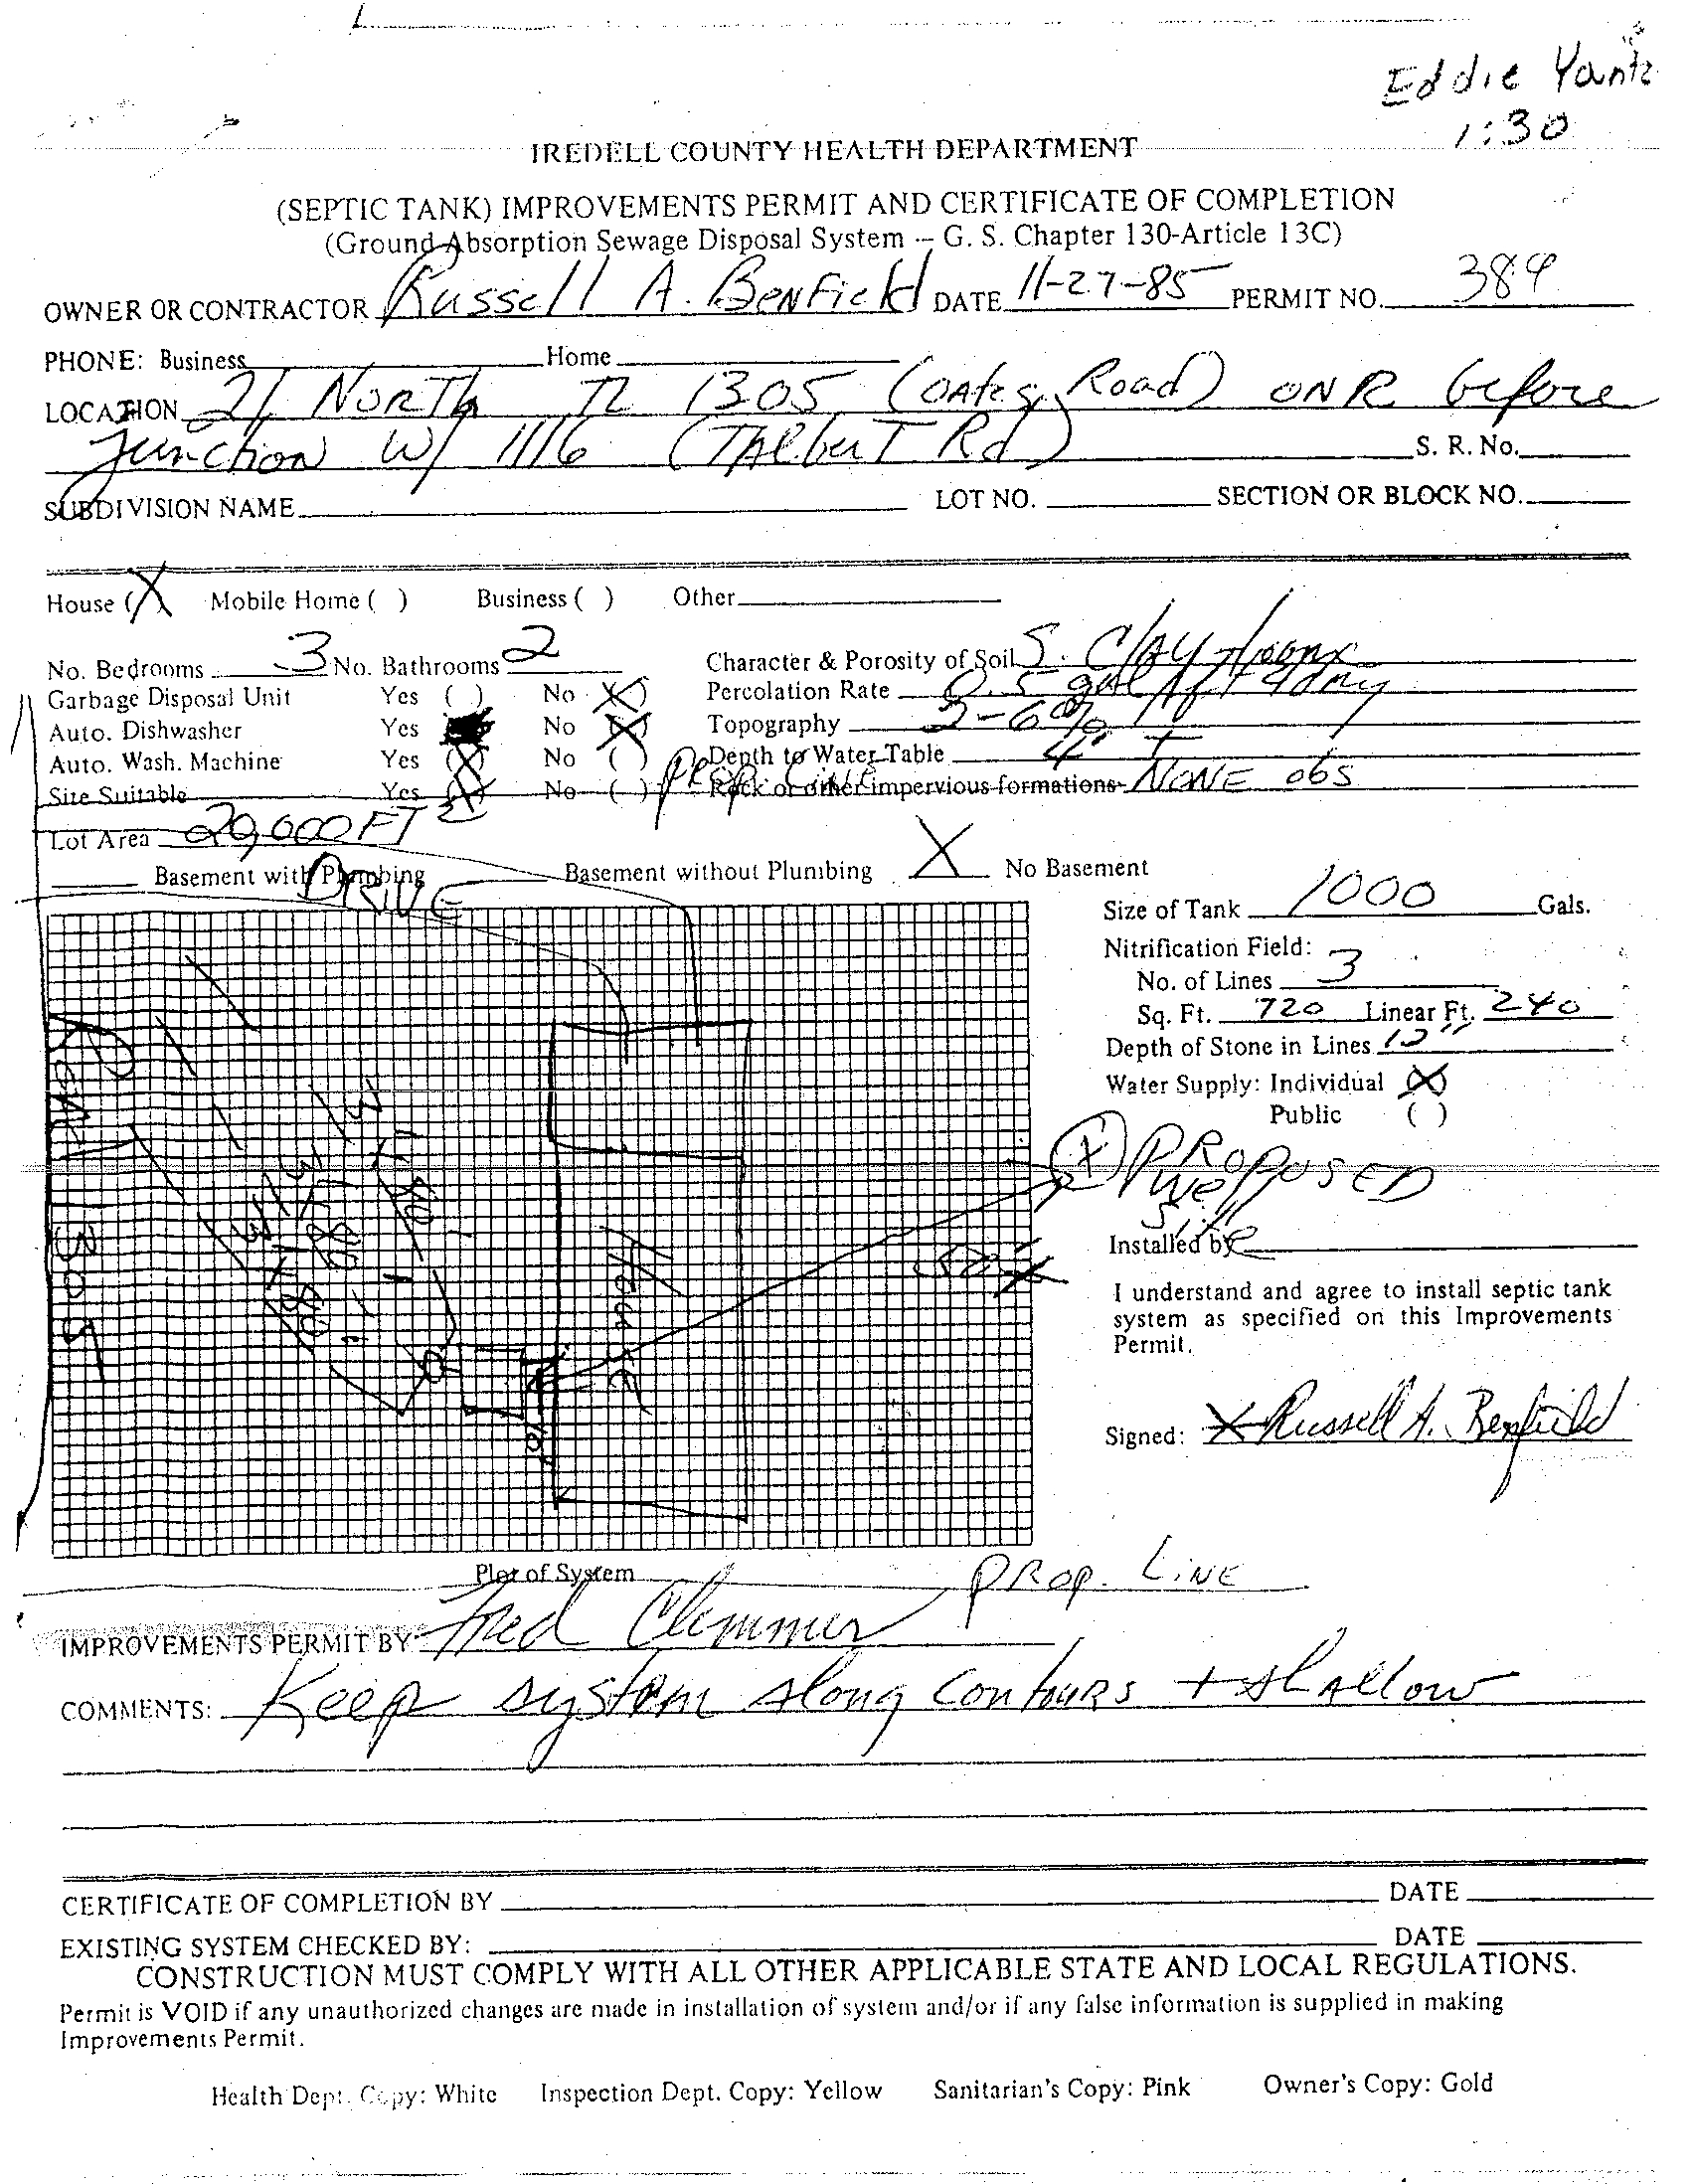 Eddie Yantz
1:30
IREDELL COUNTY HEALTH DEPARTMENT
(SEPTIC TANK) IMPROVEMENTS PERMIT AND CERTIFICATE OF COMPLETION
(Ground Absorption Sewage Disposal System -- G. S. Chapter 130-Article 13C)
OWNER OR CONTRACTOR Russell A. Benfield DATE 11-27-85 PERMIT NO. 384
PHONE: Business Home
LOCATION 21 NORTH TL 1305 (OATES Road) ON R before
Junction W/ 1116 (TAlberT Rd) S. R. No.
SUBDIVISION NAME LOT NO. SECTION OR BLOCK NO.
House (X) Mobile Home ( ) Business ( ) Other
No. Bedrooms 3 No. Bathrooms 2 Character & Porosity of Soil S. Clay loam
Garbage Disposal Unit Yes ( ) No (X) Percolation Rate 0.5 gal/ft²/day
Auto. Dishwasher Yes No (X) Topography 2-6%
Auto. Wash. Machine Yes (X) No ( ) Depth to Water Table 4' +
Site Suitable Yes (X) No ( ) Rock or other impervious formations NONE obs
PROP. LINE
Lot Area 29,000 FT²
Basement with Plumbing Basement without Plumbing X No Basement
DRIVE
Size of Tank 1000 Gals.
Nitrification Field:
No. of Lines 3
Sq. Ft. 720 Linear Ft. 240
Depth of Stone in Lines 12"
Water Supply: Individual (X)
Public ( )
PROPOSED
Well
Site
1305
3' X 80
3' X 80
3' X 80
House
10'
Installed by
I understand and agree to install septic tank
system as specified on this Improvements
Permit.
Signed: X Russell A. Benfield
Plot of System
PROP. LINE
IMPROVEMENTS PERMIT BY Fred Clemmer
COMMENTS: Keep system along contours + shallow
CERTIFICATE OF COMPLETION BY DATE
EXISTING SYSTEM CHECKED BY: DATE
CONSTRUCTION MUST COMPLY WITH ALL OTHER APPLICABLE STATE AND LOCAL REGULATIONS.
Permit is VOID if any unauthorized changes are made in installation of system and/or if any false information is supplied in making
Improvements Permit.
Health Dept. Copy: White Inspection Dept. Copy: Yellow Sanitarian's Copy: Pink Owner's Copy: Gold